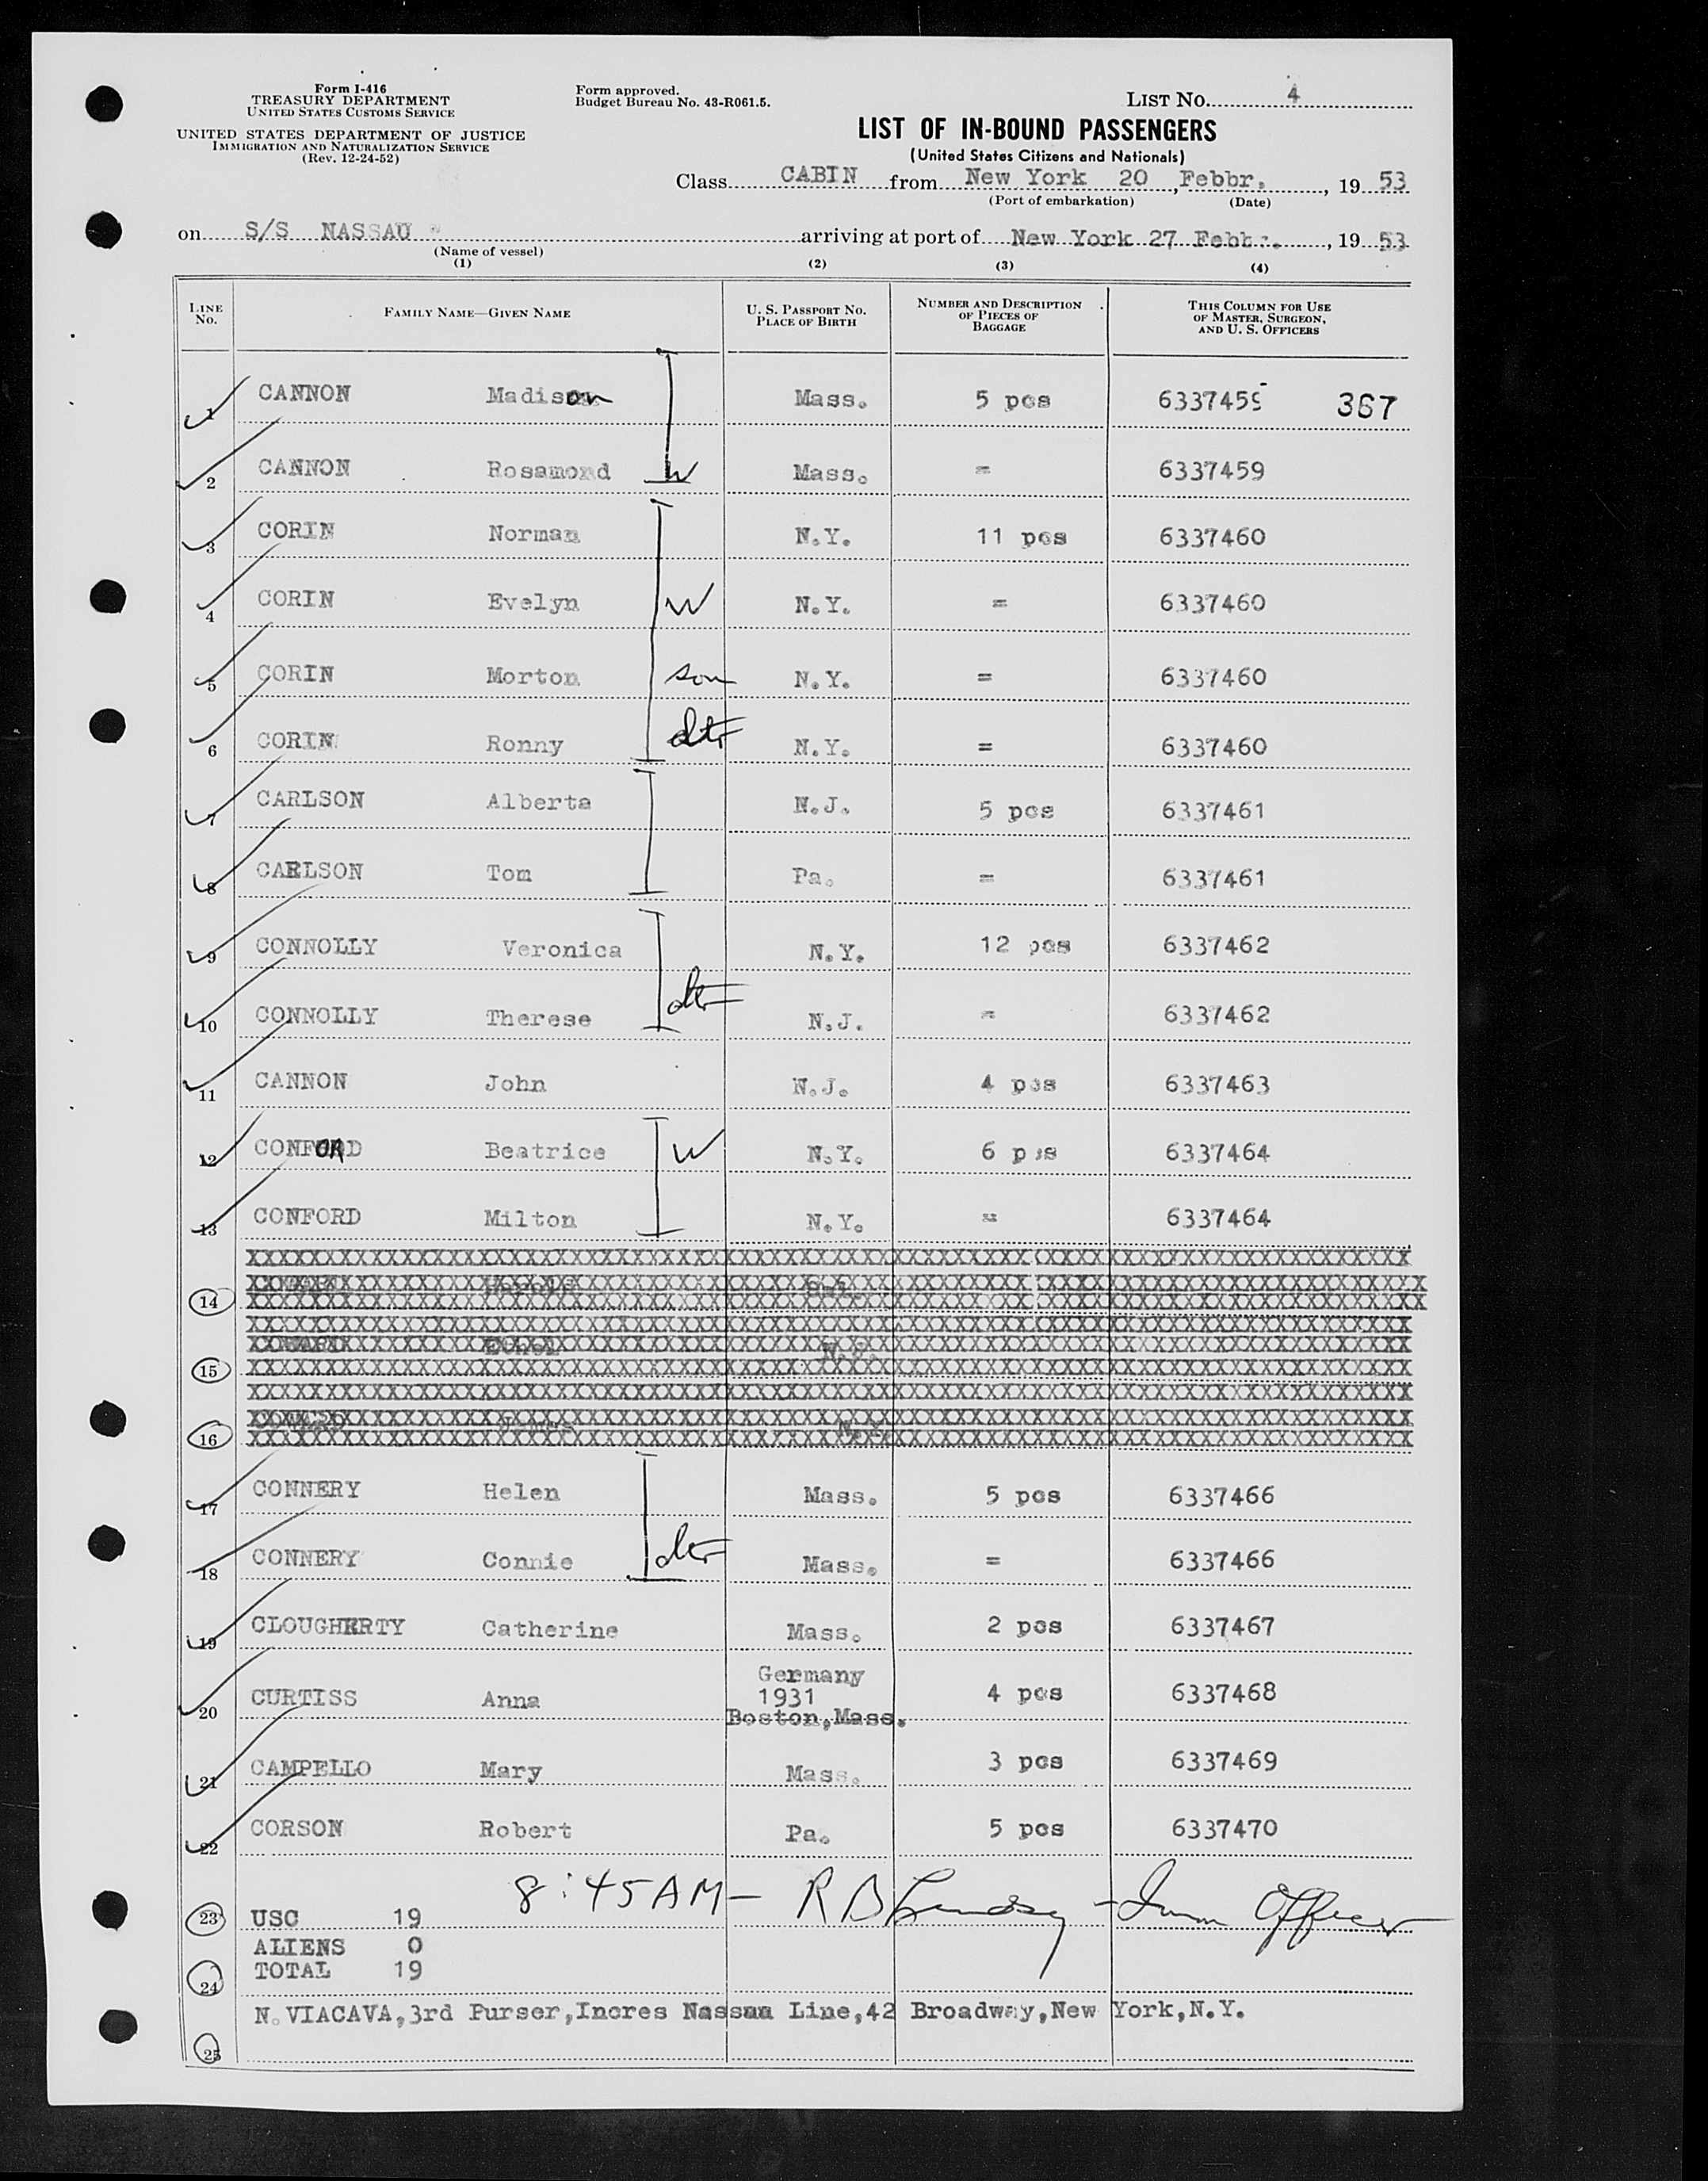 Form I-416
TREASURY DEPARTMENT
UNITED STATES CUSTOMS SERVICE
UNITED STATES DEPARTMENT OF JUSTICE
IMMIGRATION AND NATURALIZATION SERVICE
(Rev. 12-24-52)
Form approved.
Budget Bureau No. 43-R061.5.
LIST NO. 4
LIST OF IN-BOUND PASSENGERS
(United States Citizens and Nationals)
Class CABIN from New York 20, Febbr., 19 53
(Port of embarkation) (Date)
on S/S NASSAU arriving at port of New York 27 Febbr., 19 53
(Name of vessel)
(1) (2) (3) (4)
LINE No. FAMILY NAME—GIVEN NAME U. S. PASSPORT NO. PLACE OF BIRTH NUMBER AND DESCRIPTION OF PIECES OF BAGGAGE THIS COLUMN FOR USE OF MASTER, SURGEON, AND U. S. OFFICERS
1 CANNON Madison Mass. 5 pcs 6337459 367
2 CANNON Rosamond W Mass. = 6337459
3 CORIN Norman N.Y. 11 pcs 6337460
4 CORIN Evelyn W N.Y. = 6337460
5 CORIN Morton son N.Y. = 6337460
6 CORIN Ronny dtr N.Y. = 6337460
7 CARLSON Alberta N.J. 5 pcs 6337461
8 CARLSON Tom Pa. = 6337461
9 CONNOLLY Veronica N.Y. 12 pcs 6337462
10 CONNOLLY Therese dtr N.J. = 6337462
11 CANNON John N.J. 4 pcs 6337463
12 CONFORD Beatrice W N.Y. 6 pcs 6337464
13 CONFORD Milton N.Y. = 6337464
14
15 N.Y.
16 N.Y.
17 CONNERY Helen Mass. 5 pcs 6337466
18 CONNERY Connie dtr Mass. = 6337466
19 CLOUGHERTY Catherine Mass. 2 pcs 6337467
20 CURTISS Anna Germany 1931 Boston,Mass. 4 pcs 6337468
21 CAMPELLO Mary Mass. 3 pcs 6337469
22 CORSON Robert Pa. 5 pcs 6337470
8:45 AM – R B Lindsay – Imm Officer
23 USC 19
ALIENS 0
24 TOTAL 19
N.VIACAVA,3rd Purser,Incres Nassau Line,42 Broadway,New York,N.Y.
25